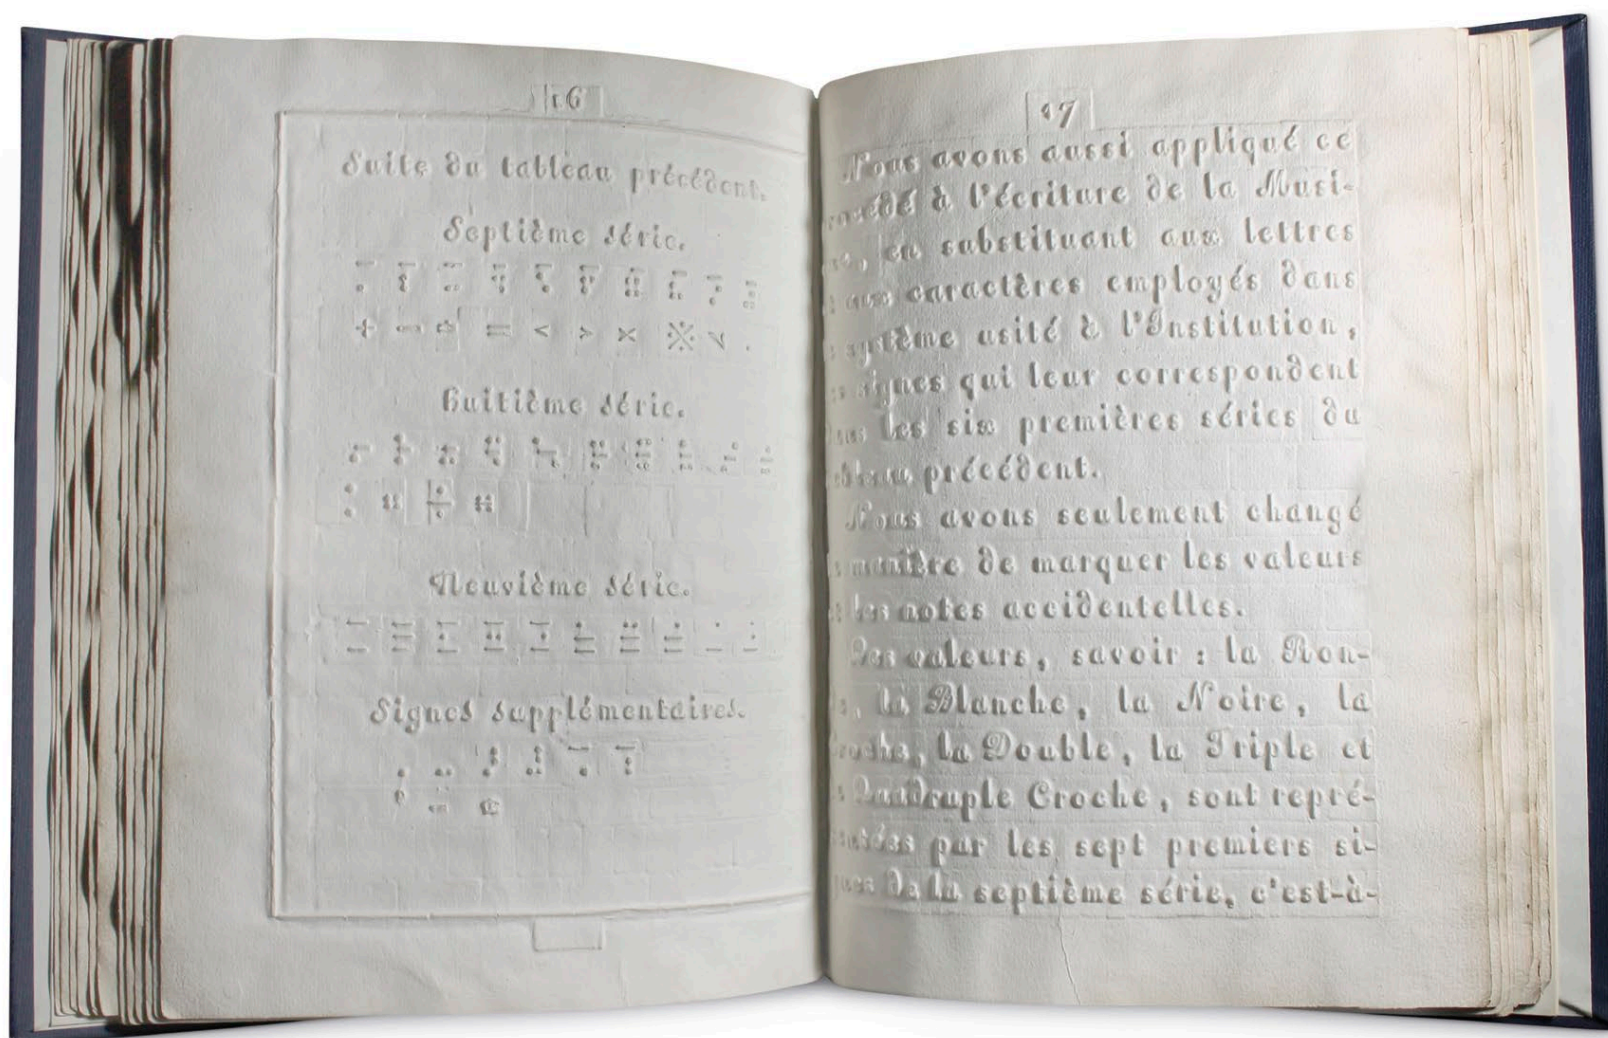 16
Suite du tableau précédent.
Septième série.
+ − = < > × ※ .
Huitième série.
Neuvième série.
Signes supplémentaires.
17
Nous avons aussi appliqué ce
à l'écriture de la Musi-
en substituant aux lettres
aux caractères employés dans
système usité à l'Institution,
signes qui leur correspondent
les six premières séries du
précédent.
Nous avons seulement changé
manière de marquer les valeurs
les notes accidentelles.
Les valeurs, savoir : la Ron-
la Blanche, la Noire, la
Croche, la Double, la Triple et
Quadruple Croche, sont repré-
par les sept premiers si-
de la septième série, c'est-à-